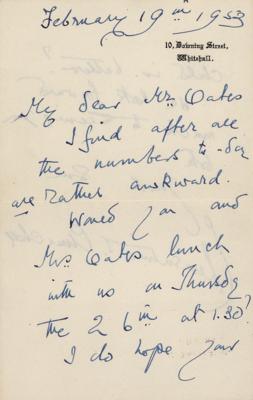 February 19th 1953
10, Downing Street,
Whitehall.
My dear Mr. Oates
I find after all
the numbers to-day
are rather awkward.
Would you and
Mrs Oates lunch
with us on Thursday
the 26th at 1.30?
I do hope your